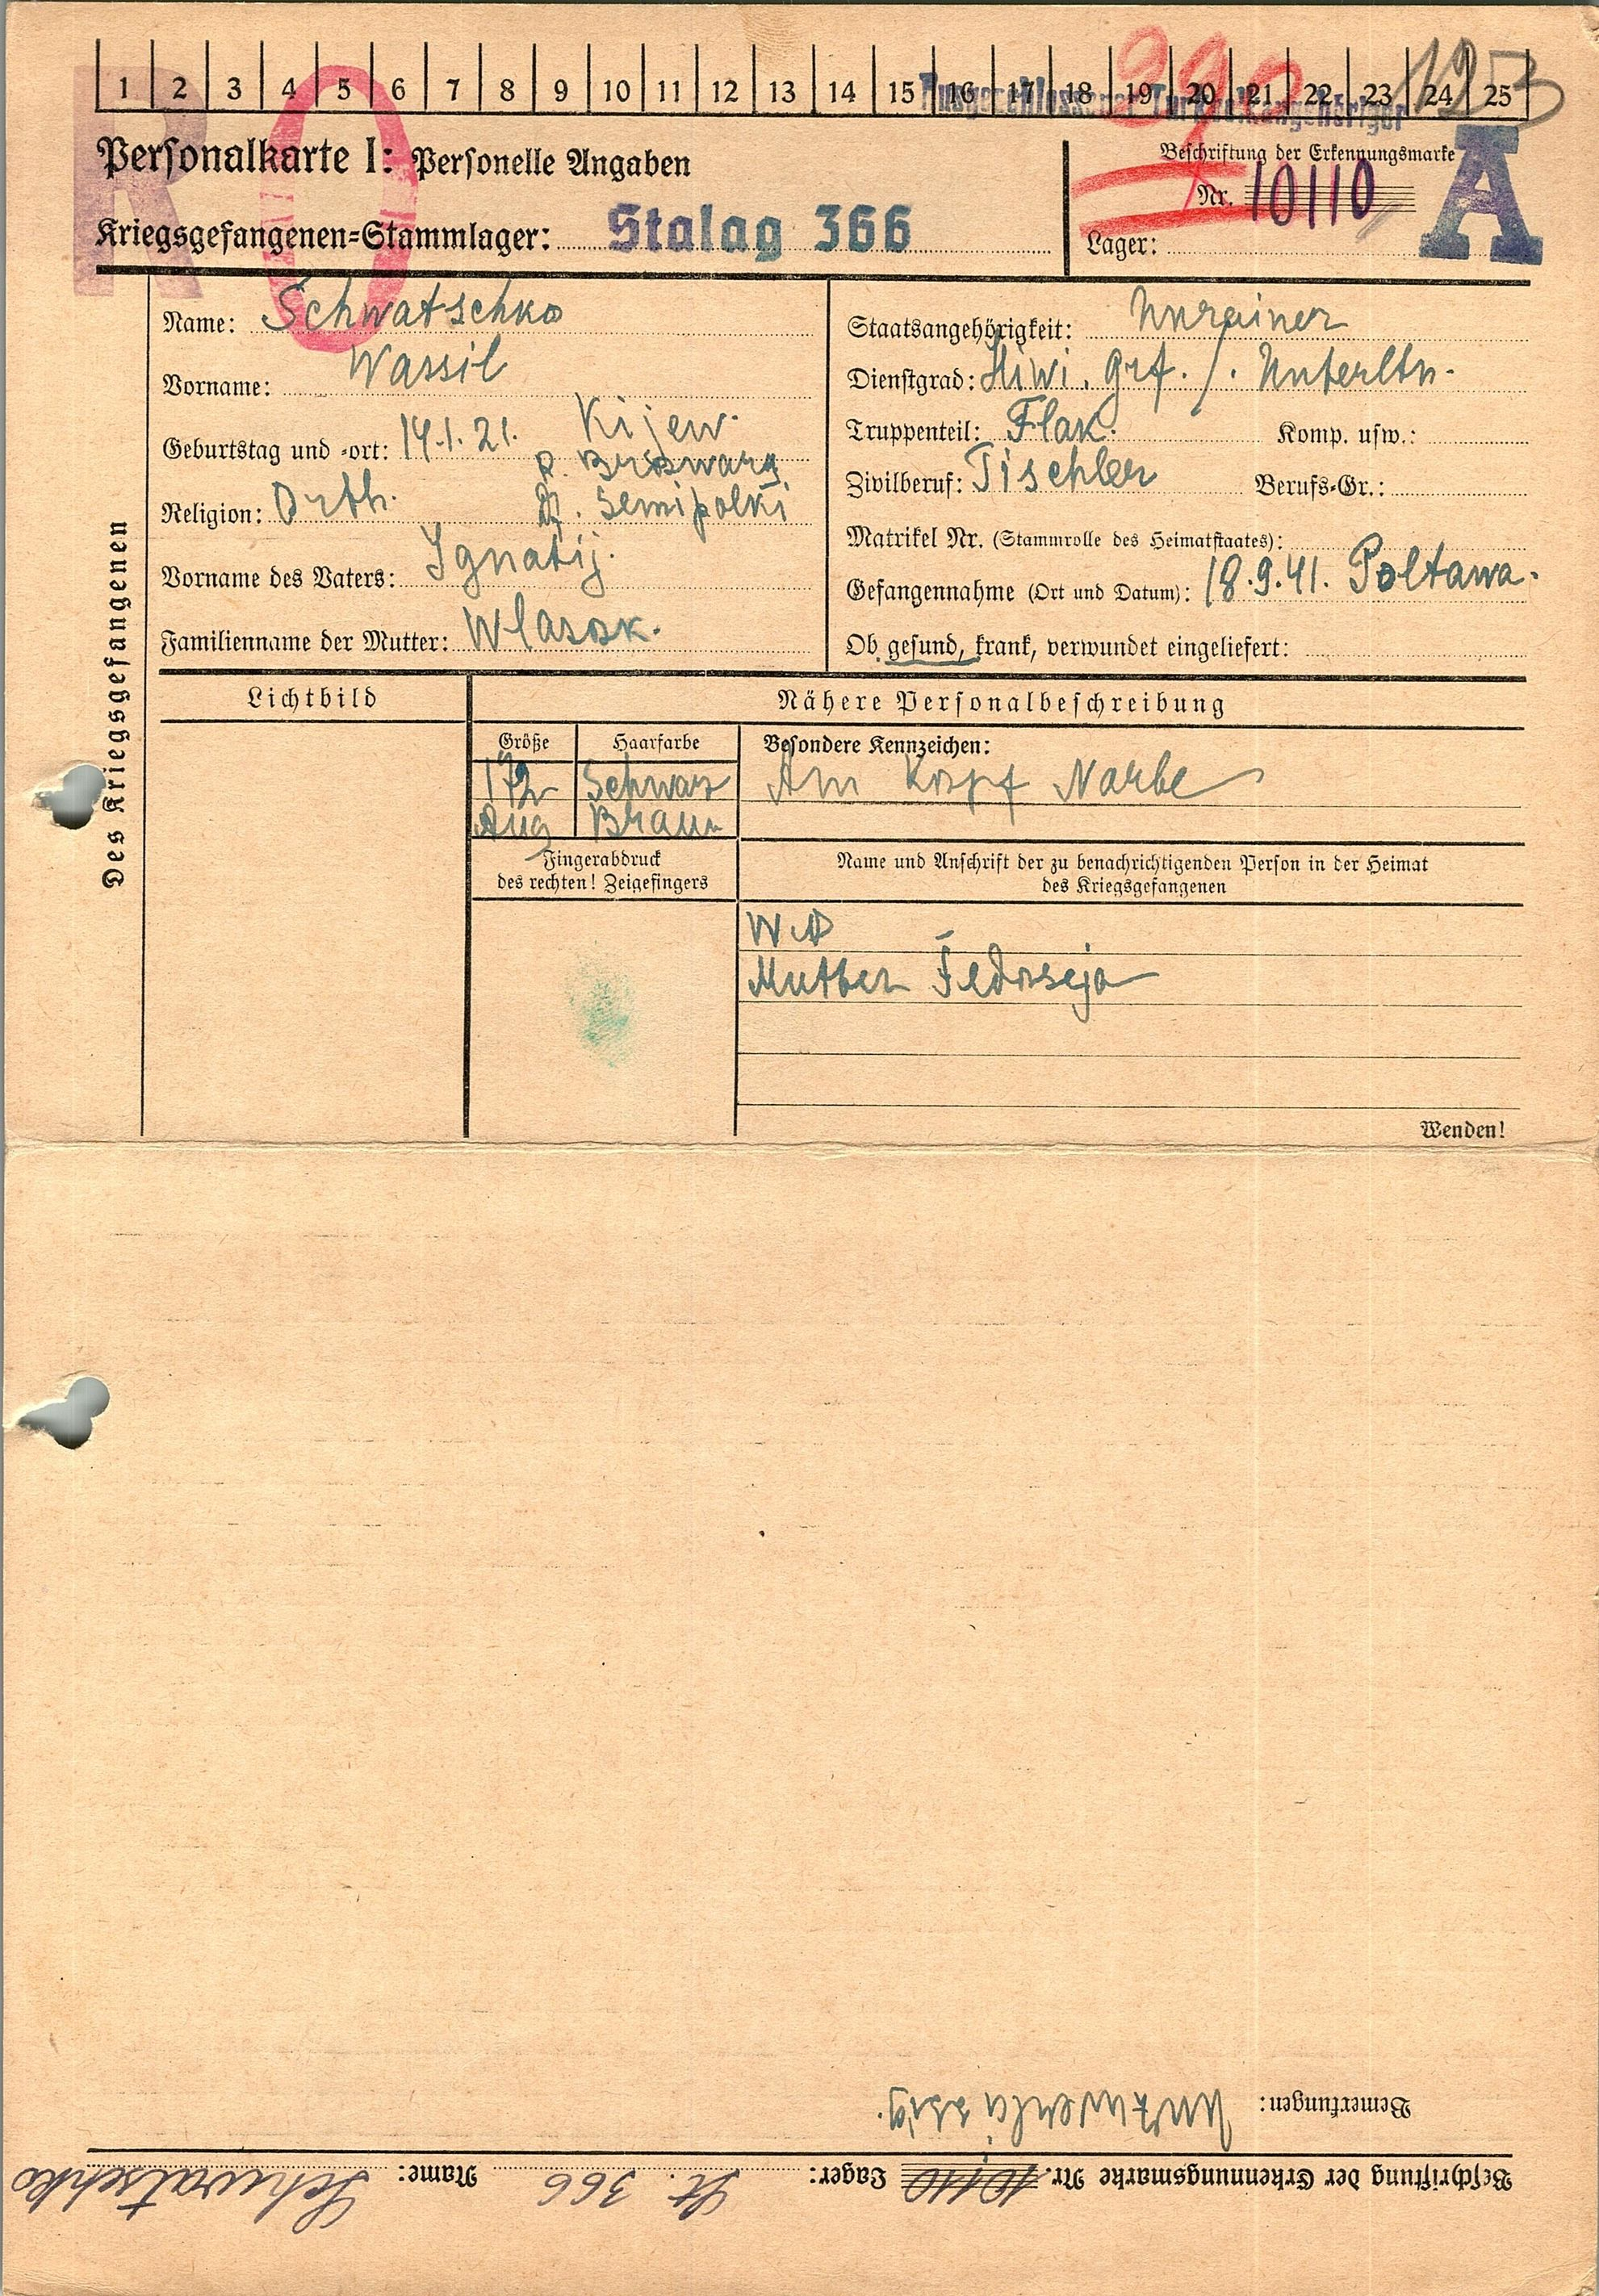 1 2 3 4 5 6 7 8 9 10 11 12 13 14 15 16 17 18 19 20 21 22 23 24 25
Personalkarte I: Personelle Angaben
Beschriftung der Erkennungsmarke
R O
Nr. 10110
A
Kriegsgefangenen-Stammlager: Stalag 366
Lager:
Des Kriegsgefangenen
Name: Schwatschko
Vorname: Wassil
Geburtstag und -ort: 14.1.21. Kijew.
R. Browary
Religion: Orth.
D. Semipolki
Vorname des Vaters: Ignatij.
Familienname der Mutter: Wlasok.
Staatsangehörigkeit: Ukrainer
Dienstgrad: Hiwi. Grf. /. Unterltn.
Truppenteil: Flak. Komp. usw.:
Zivilberuf: Tischler Berufs-Gr.:
Matrikel Nr. (Stammrolle des Heimatstaates):
Gefangennahme (Ort und Datum): 18.9.41. Poltawa.
Ob gesund, krank, verwundet eingeliefert:
Lichtbild
Nähere Personalbeschreibung
Größe Haarfarbe Besondere Kennzeichen:
172 Schwarz Am Kopf Narbe
Aug Braun
Fingerabdruck
des rechten! Zeigefingers
Name und Anschrift der zu benachrichtigenden Person in der Heimat
des Kriegsgefangenen
Mutter Fedoseja
Wenden!
Bemerkungen: Unzuverlässig.
Beschriftung der Erkennungsmarke Nr. 10110 Lager: St. 366 Name: Schwatschko